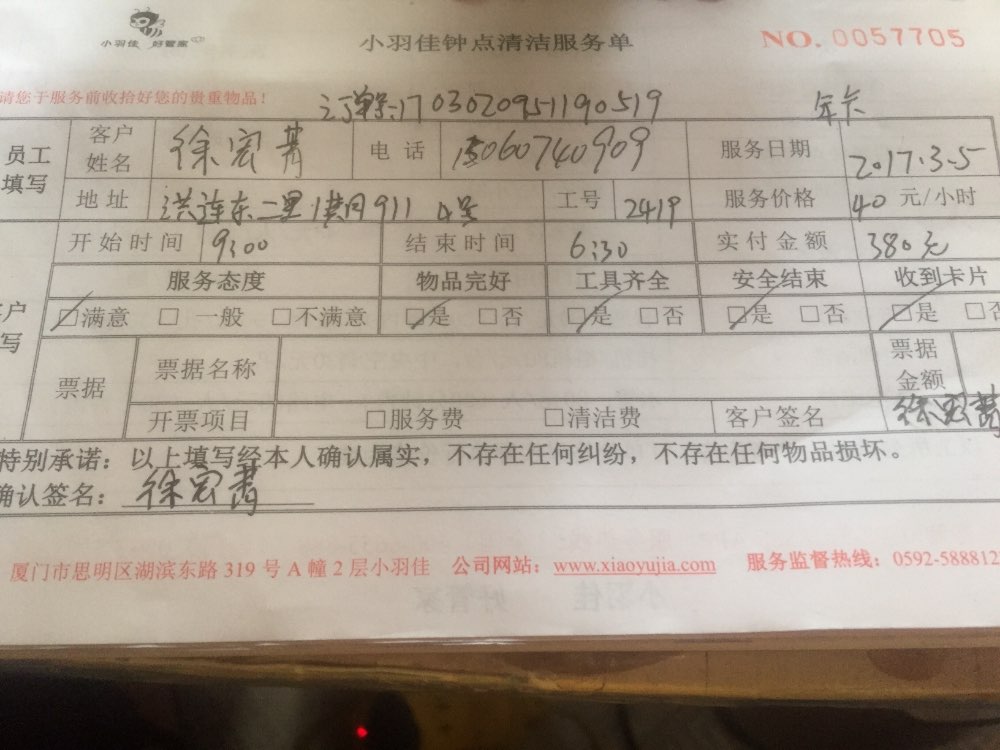 小羽佳 好管家
小羽佳钟点清洁服务单
NO. 0057705
请您于服务前收拾好您的贵重物品！
订单号:17030209511190519 年卡
员工填写 客户姓名 徐宏菁 电话 15060740909 服务日期 2017.3.5
地址 洪莲东二里 911 4号 工号 2419 服务价格 40 元/小时
开始时间 9:00 结束时间 6:30 实付金额 380元
服务态度 物品完好 工具齐全 安全结束 收到卡片
☑满意 □ 一般 □不满意 ☑是 □否 ☑是 □否 ☑是 □否 ☑是 □否
票据 票据名称 票据金额
开票项目 □服务费 □清洁费 客户签名 徐宏菁
特别承诺：以上填写经本人确认属实，不存在任何纠纷，不存在任何物品损坏。
确认签名：徐宏菁
厦门市思明区湖滨东路 319 号 A 幢 2 层小羽佳 公司网站：www.xiaoyujia.com 服务监督热线：0592-588812